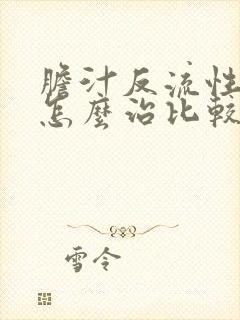 膽汁反流性
怎麼治比較
雪令